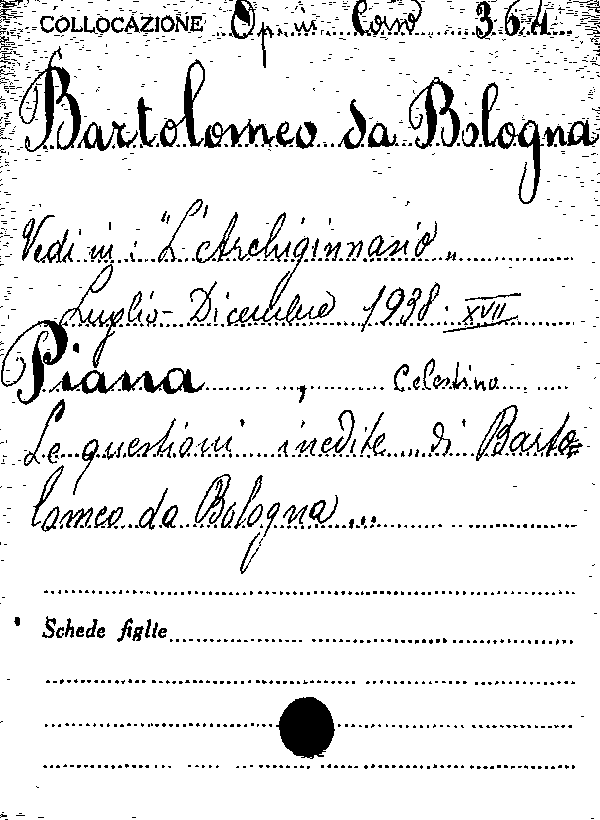 COLLOCAZIONE Op. in Corso
Bartolomeo da Bologna
Vedi in: "L'Archiginnasio„
Luglio-Dicembre 1938. XVII
Piana, Celestino
Le questioni inedite di Barto=
lomeo da Bologna...
Schede figlie